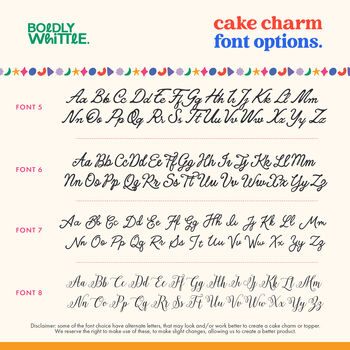 BOLDLY
WHiTTLE.
cake charm
font options.
FONT 5
Aa Bb Cc Dd Ee Ff Gg Hh Ii Jj Kk Ll Mm
Nn Oo Pp Qq Rr Ss Tt Uu Vv Ww Xx Yy Zz
FONT 6
Aa Bb Cc Dd Ee Ff Gg Hh Ii Jj Kk Ll Mm
Nn Oo Pp Qq Rr Ss Tt Uu Vv Ww Xx Yy Zz
FONT 7
Aa Bb Cc Dd Ee Ff Gg Hh Ii Jj Kk Ll Mm
Nn Oo Pp Qq Rr Ss Tt Uu Vv Ww Xx Yy Zz
FONT 8
Aa Bb Cc Dd Ee Ff Gg Hh Ii Jj Kk Ll Mm
Nn Oo Pp Qq Rr Ss Tt Uu Vv Ww Xx Yy Zz
Disclaimer: some of the font choice have alternate letters, that may look and/or work better to create a cake charm or topper.
We reserve the right to make use of these, to make slight changes, allowing us to create a better product.